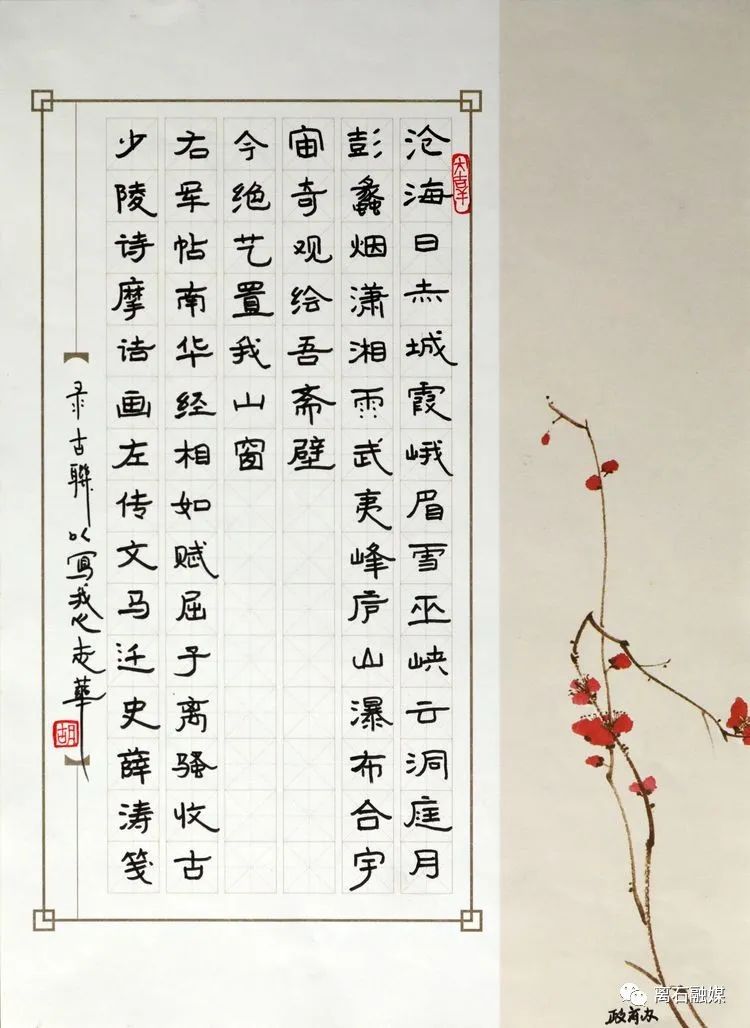 沧海日赤城霞峨眉雪巫峡云洞庭月
彭蠡烟潇湘雨武夷峰庐山瀑布合宇
宙奇观绘吾斋壁
少陵诗摩诘画左传文马迁史薛涛笺
右军帖南华经相如赋屈子离骚收古
今绝艺置我山窗
录古聯以寫我心志華
大吉羊
胡
政府办
离石融媒